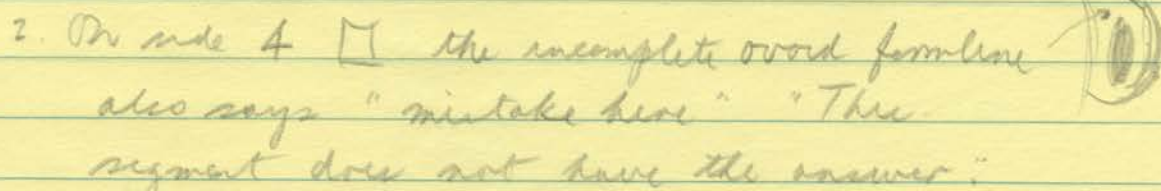 2. On side 4 the incomplete ovoid formline
also says "mistake here" "This
segment does not have the answer."